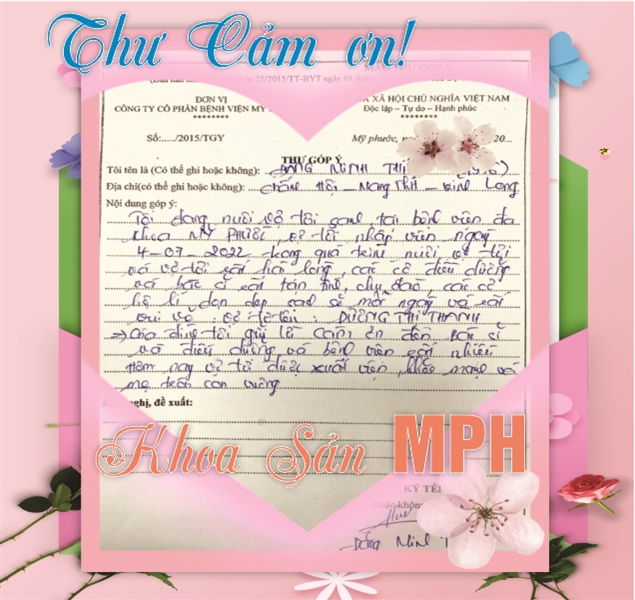 Thư Cảm ơn!
25/2015/TT-BYT ngày 01 thá
ĐƠN VỊ
CÔNG TY CỔ PHẦN BỆNH VIỆN MỸ
********
Số:...../2015/TGY
XÃ HỘI CHỦ NGHĨA VIỆT NAM
Độc lập - Tự do - Hạnh phúc
********
Mỹ phước, 20...
THƯ GÓP Ý
Tôi tên là (Có thể ghi hoặc không): ĐẶNG MINH THI
Địa chỉ(có thể ghi hoặc không): Chánh Hội - Mang Thít - Vĩnh Long
Nội dung góp ý:
Tôi đang nuôi vợ tôi sanh tại bệnh viện đa
khoa MỸ PHƯỚC, vợ tôi nhập viện ngày
4-07-2022 trong quá trình nuôi vợ tôi
và vợ tôi rất hài lòng, các cô điều dưỡng
và bác sĩ rất tận tình, chu đáo, các cô
hộ lí dọn dẹp sạch sẽ mỗi ngày và rất
vui vẻ. vợ tôi tên: DƯƠNG THỊ THANH
=> Gia đình tôi gửi lời cảm ơn đến bác sĩ
và điều dưỡng và bệnh viện rất nhiều
Hôm nay vợ tôi được xuất viện, khỏe mạnh và
mẹ tròn con vuông
nghị, đề xuất:
Khoa Sản MPH
KÝ TÊ
hoặc khôn
Đặng Minh